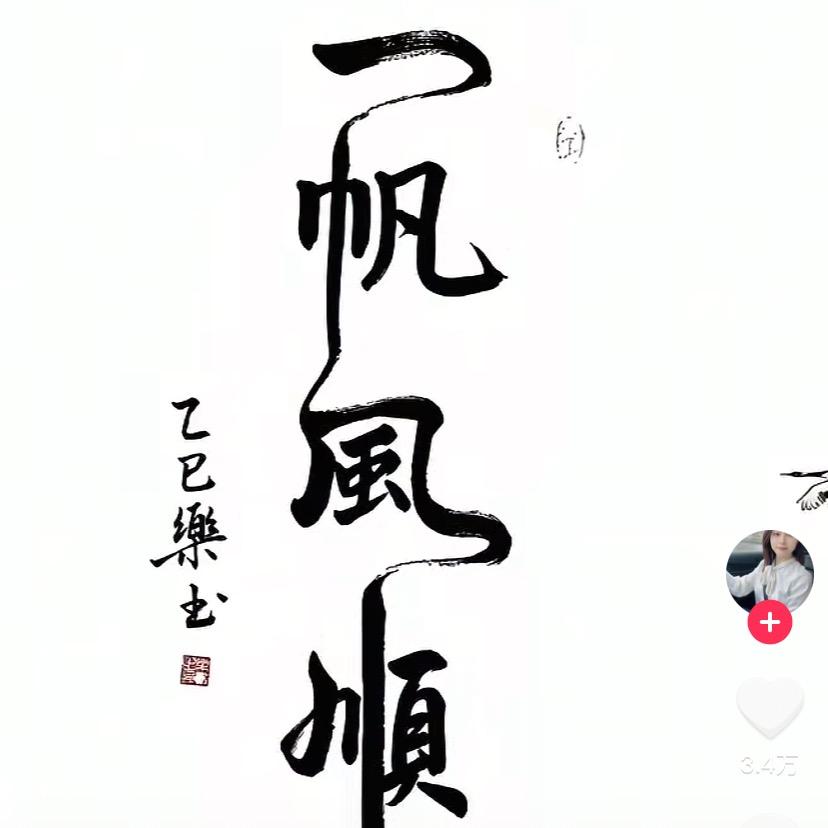 一帆風順
乙巳樂书
3.4万